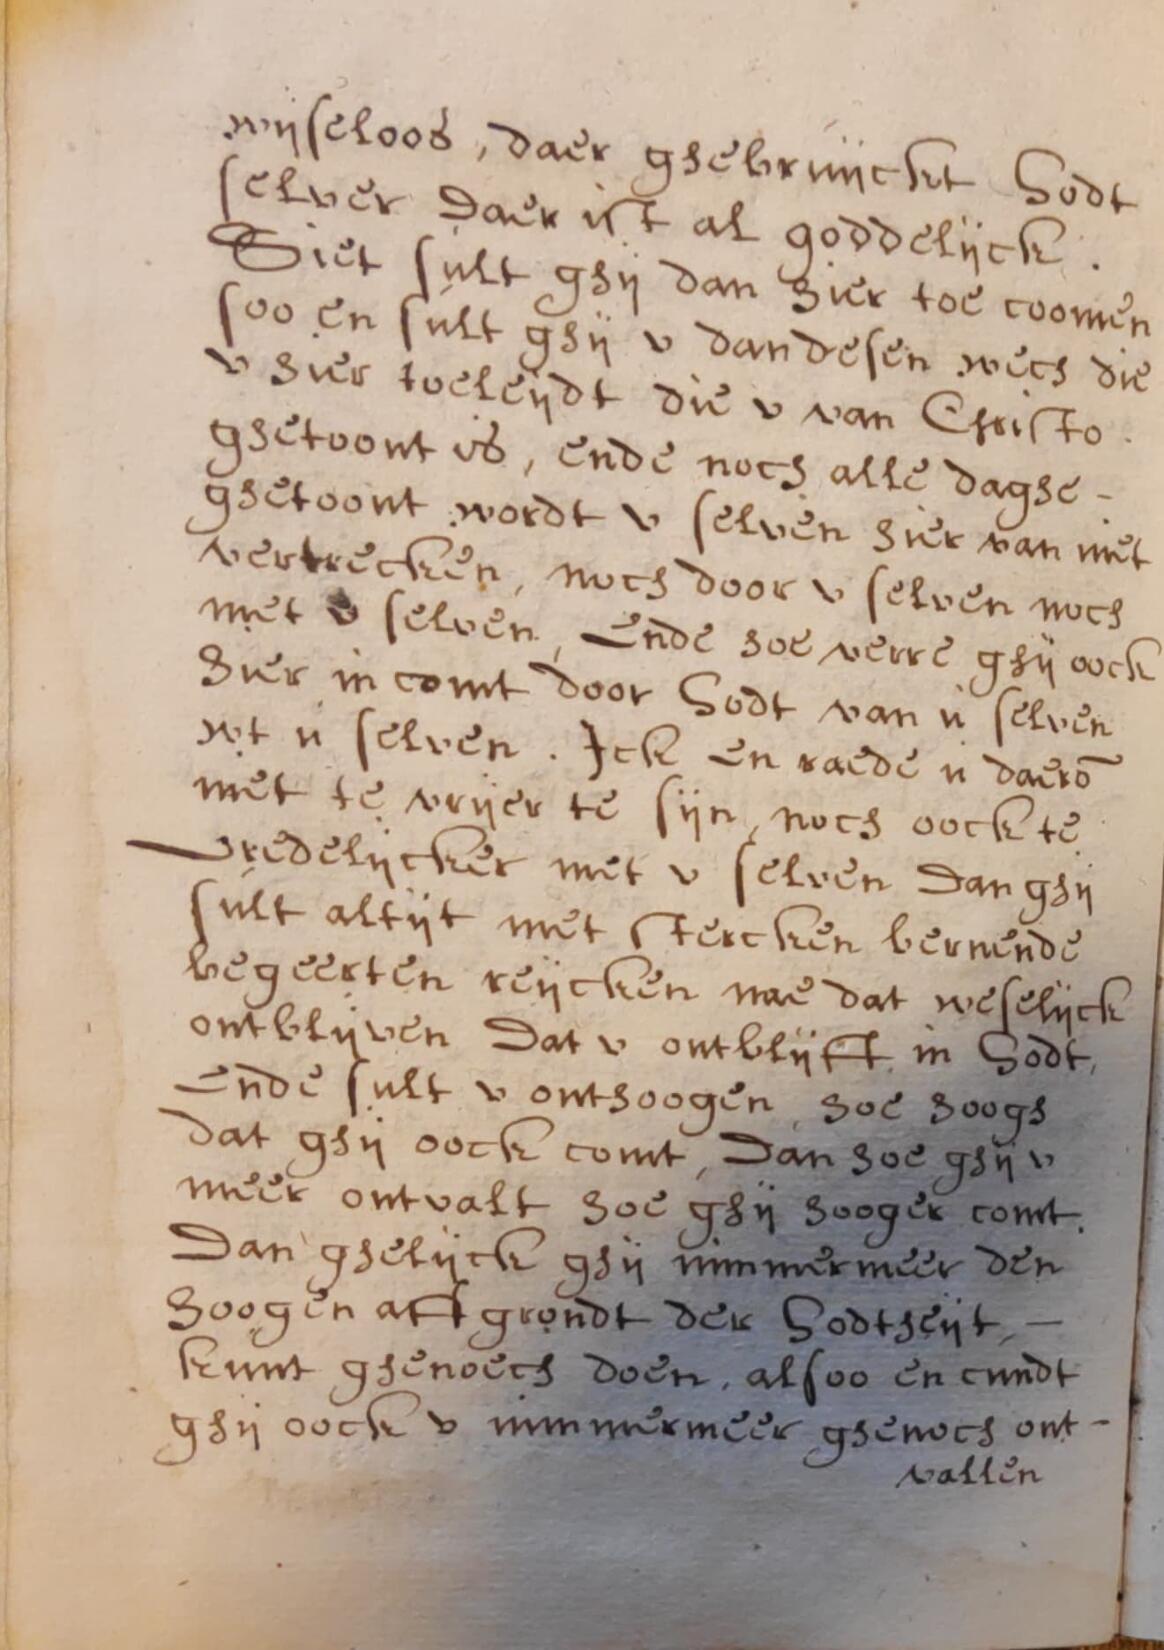 wijseloos, daer ghebruijckt Godt
selver Daer ist al goddelijck.
Siet sult ghij dan hier toe coomen
soo en sult ghij v van desen wech die
v hier toeleijdt die v van Christo.
ghetoont is, ende noch alle daghe -
ghetoont wordt v selven hier van niet
vertrecken, noch door v selven noch
met v selven, Ende hoe verre ghij oock
hier in comt door Godt van u selven
wt u selven. Ick en raede u daerō
niet te vrijer te sijn, noch oock te
vredelijcker met v selven Dan ghij
sult altijt met stercken bernende
begeerten reijcken nae dat weselijck
ontblijven Dat v ontblijft in Godt,
Ende sult v onthoogen, hoe hoogh
dat ghij oock comt, Dan hoe ghij v
meer ontvalt hoe ghij hooger comt.
Dan ghelijck ghij nimmermeer den
hoogen affgrondt der Godtheijt, -
kunt ghenoech doen, alsoo en cundt
ghij oock v nimmermeer ghenoch ont -
vallen